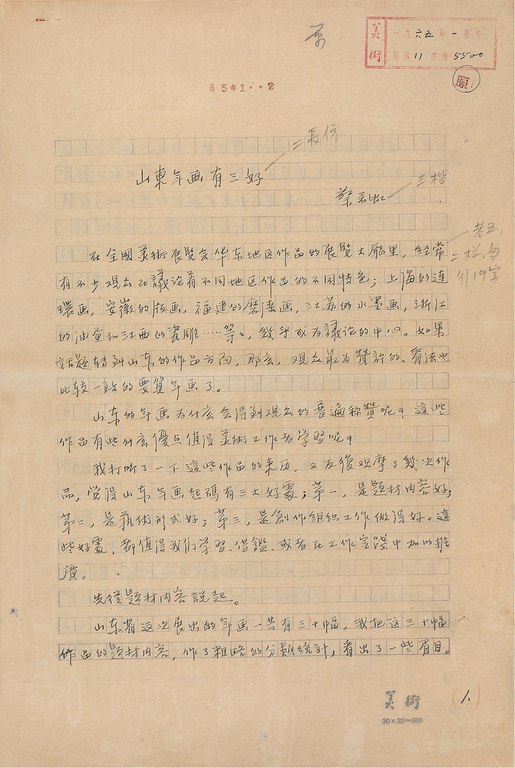 美術
一九六五年一月号
頁数11字数5500
原
65年1··2
山東年画有三好
二長仿
蔡若虹
三楷
老五,
二栏,每
行19字
在全國美術展覽会华东地区作品的展覽大厅里，經常
有不少观众在議论着不同地区作品的不同特色；上海的连
環画，安徽的版画，福建的壁漆画，江苏的水墨画，浙江
的油畫和江西的瓷雕……等。，幾乎成为議论的中心。如果
話题轉到山东的作品方面，那么，观众最为贊許的、看法也
比较一致的要算年画了。
山东的年画为什么会得到观众的普遍称赞呢？这些
作品有些什么優点值得美術工作者学習呢？
我打听了一下这些作品的来历，又反復观摩了幾次作
品，觉得山东年画起碼有三大好處；第一，是题材内容好；
第二，是藝術形式好；第三，是創作組织工作做得好。這
些好處，都值得我们学習、借鑑、或者在工作实踐中加以推
廣。
先從题材内容說起。
山东省这次展出的年画一共有三十幅，我把这三十幅
作品的题材内容，作了粗略的分類統計，看出了一些眉目。
美術
20×25=500
1.